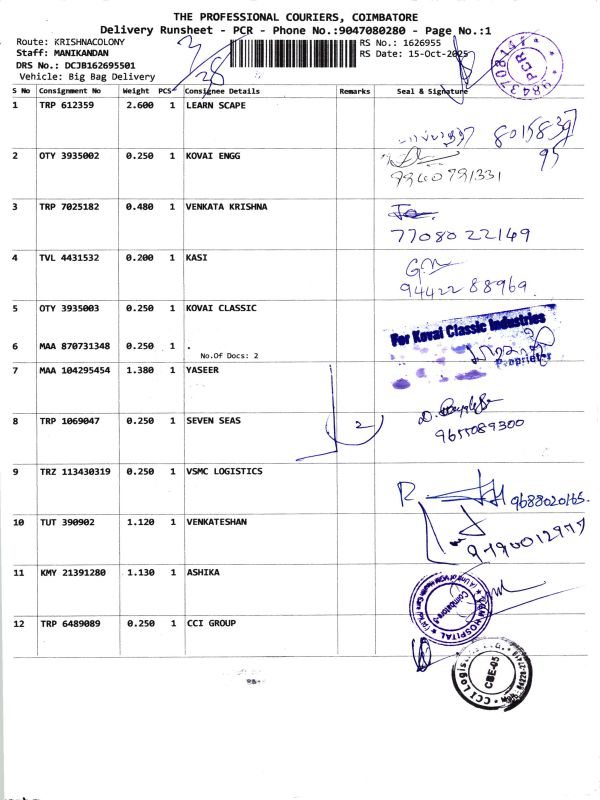 THE PROFESSIONAL COURIERS, COIMBATORE
Delivery Runsheet - PCR - Phone No.:9047080280 - Page No.:1
Route: KRISHNACOLONY
Staff: MANIKANDAN
DRS No.: DCJB162695501
Vehicle: Big Bag Delivery
RS No.: 1626955
RS Date: 15-Oct-2025
3/28
PCR
S No Consignment No Weight PCS Consignee Details Remarks Seal & Signature
1 TRP 612359 2.600 1 LEARN SCAPE
8015839795
2 OTY 3935002 0.250 1 KOVAI ENGG
9940791331
3 TRP 7025182 0.480 1 VENKATA KRISHNA
7708022149
4 TVL 4431532 0.200 1 KASI
9442288969
5 OTY 3935003 0.250 1 KOVAI CLASSIC
For Kovai Classic Industries
Proprietor
6 MAA 870731348 0.250 1 .
No.Of Docs: 2
7 MAA 104295454 1.380 1 YASEER
8 TRP 1069047 0.250 1 SEVEN SEAS
2
9655089300
9 TRZ 113430319 0.250 1 VSMC LOGISTICS
9688020165.
10 TUT 390902 1.120 1 VENKATESHAN
11 KMY 21391280 1.130 1 ASHIKA
HOSPITAL
12 TRP 6489089 0.250 1 CCI GROUP
CCI Logistics
CBE-05